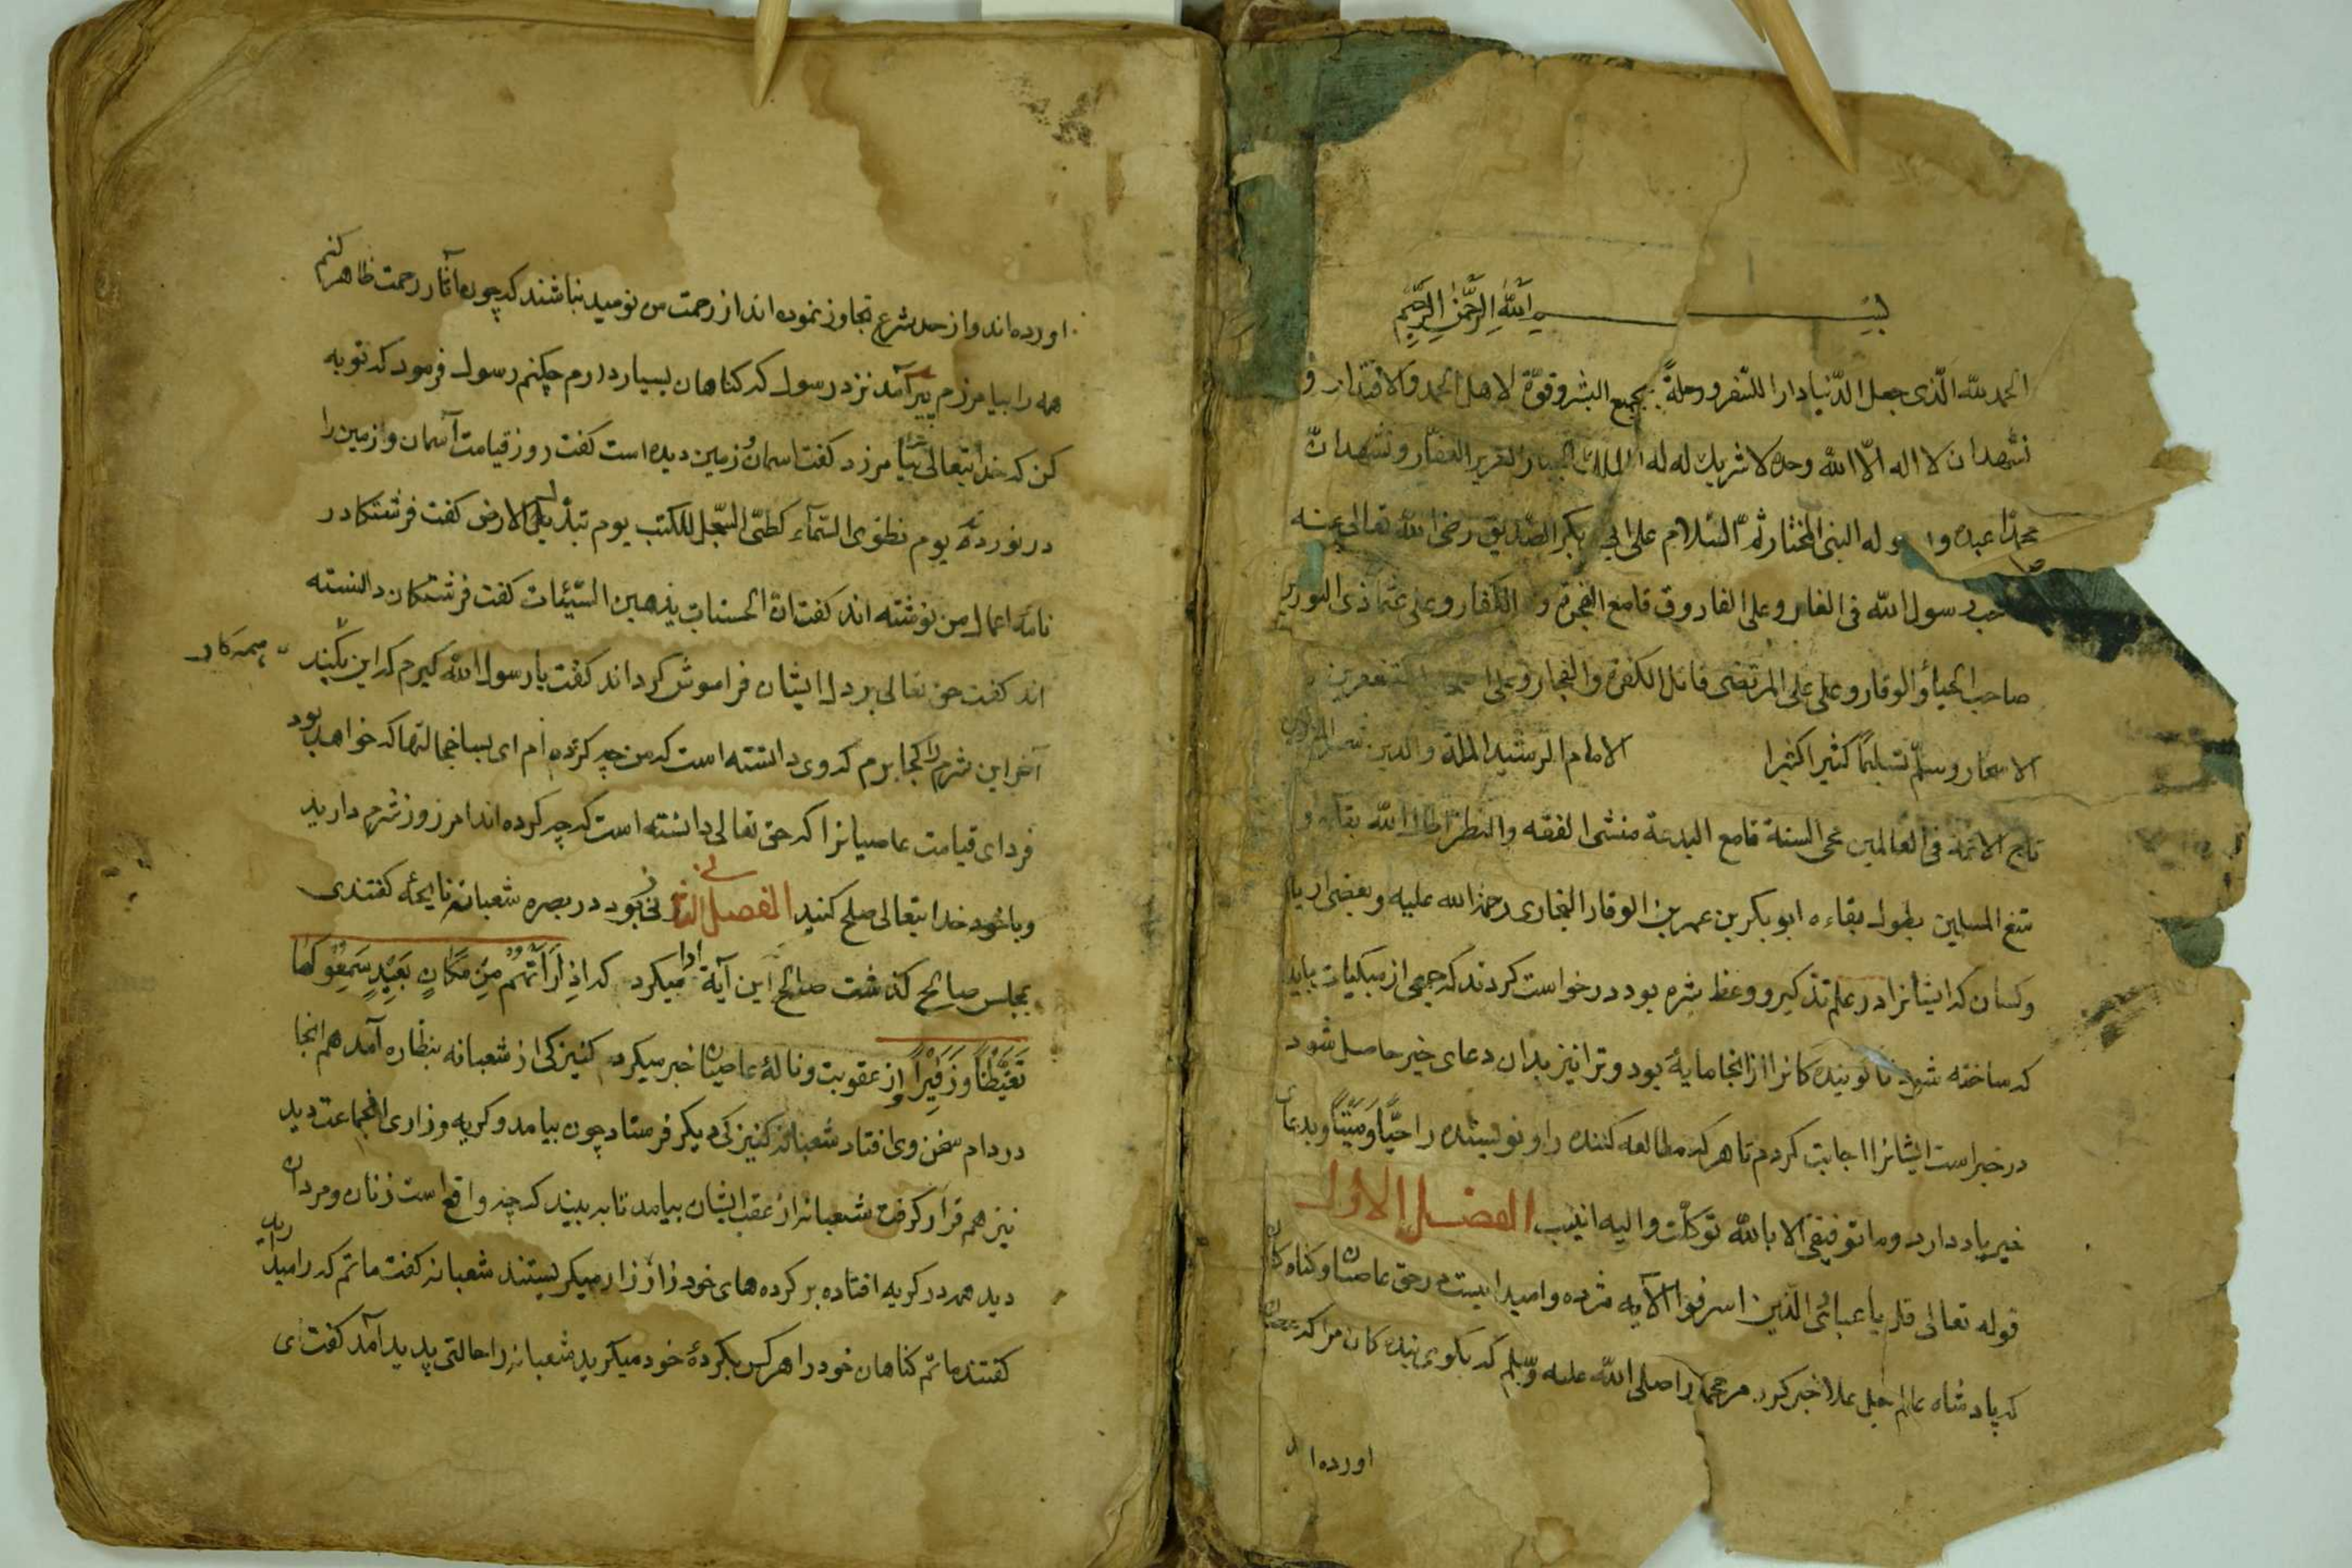 بسم الله الرحمن الرحیم
الحمد لله الّذی جعل الدّنیا دارا للسّفر ورحلةً بجمیع البشر وقوّة لاهل الحمد والاقتدار و
نشهد ان لا اله الّا الله وحده لا شریك له له الملك الجبار العزیز الغفّار ونشهد انّ
محمدًا عبده و له النبی المختار ثمّ السّلام علی ابی بکر الصّدیق رضی الله تعالی عنه
صاحب رسول الله فی الغار وعلی الفاروق قامع الفجرة و الکفار وعلی عثمان ذی النورین
صاحب الحیاء والوقار وعلی علی المرتضی قاتل الکفرة والفجار وعلی المستغفرین
الاسحار وسلّم تسلیمًا کثیرا کثیرا الامام الرشید الملة والدین
تاج الائمه فی العالمین محی السنة قامع البدعة منشی الفقه والنظر اطال الله بقاءه و
متع المسلمین بطول بقاءه ابو بکر بن عمر بن الوقار البخاری رحمة الله علیه وبعضی از یا
وکسان که ایشانرا در علم تذکیر ووعظ شره بود درخواست کردند که جمعی از میکیات باید
که ساخته شود تا کوینده کانرا از انجا مایهٔ بود وترا نیز بدان دعای خیر حاصل شود
در خبر است ایشانرا اجابت کردم تا هر که مطالعه کننده را ونویسنده را حیًّا ومیّتًا وبدعا
خیر یاد دارد وما توفیقی الا بالله توکلت والیه انیب الفصل الاول
قوله تعالی قل یا عبادی الّذین اسرفوا الآیه مژده وامیدا یست در حق عاصیان وکناه کا
که پادشاه عالم جل علا خبر کرد مر محمد را صلی الله علیه وسلم که بکوی بنده کان مرا که عصیان
اورده ا
اورده اند واز حد شرع تجاوز نموده اند از رحمت من نومید نباشند که چون آثار رحمت ظاهر کنم
همه را بیامرزم پیر آمد نزد رسول که کناهان بسیار دارم چکنم رسول فرمود که توبه
کن که خدایتعالی بیامرزد کفت اسمان وزمین دیده است کفت روز قیامت آسمان وازمین را
در نوردد یوم نطوی السّمآء کطیّ السّجل للکتب یوم تبدّیل الارض کفت فرشتکا در
نامهٔ اعمال من نوشته اند کفت انّ الحسنات یذهبن السّیّئات کفت فرشتکان دانسته
اند کفت حق تعالی بر دل ایشان فراموش کرداند کفت یا رسول الله کیرم که این بکنند
آخر این شرم را کجا برم که وی دانسته است که من چه کرده ام ای بسا خجالتها که خواهد بود
فردای قیامت عاصیانرا که حق تعالی دانسته است که چه کرده اند امرزوز شرم دارید
وبا خود خدایتعالی صلح کنید الفصل الثانی زنی بود در بصره شعبانه نایحه کفتندی
بمجلس صالح کذشت صالح این آیة ادا میکرد که اذ رأتهم من مکان بعید سمعوا لها
تغیّظًا وزفیرًا واز عقوبت ونالهٔ عاصیان خبر میکرد کنیزکی از شعبانه بنظاره آمد هم انجا
در دام سخن وی افتاد شعبانه کنیزکی دیکر فرستاد چون بیامد وکریه وزاری انجماعت دید
نیز هم قرار کرفت شعبانه از عقب ایشان بیامد تا به بیند که چه واقع است زنان ومردان
دید همه در کریه افتاده بر کرده های خود زار زار میکریستند شعبانه کفت ماتم که رامیدارید
کفتند ماتم کناهان خود را هر کس بکردهٔ خود میکرید شعبانه را حالتی پدید آمد کفت ای